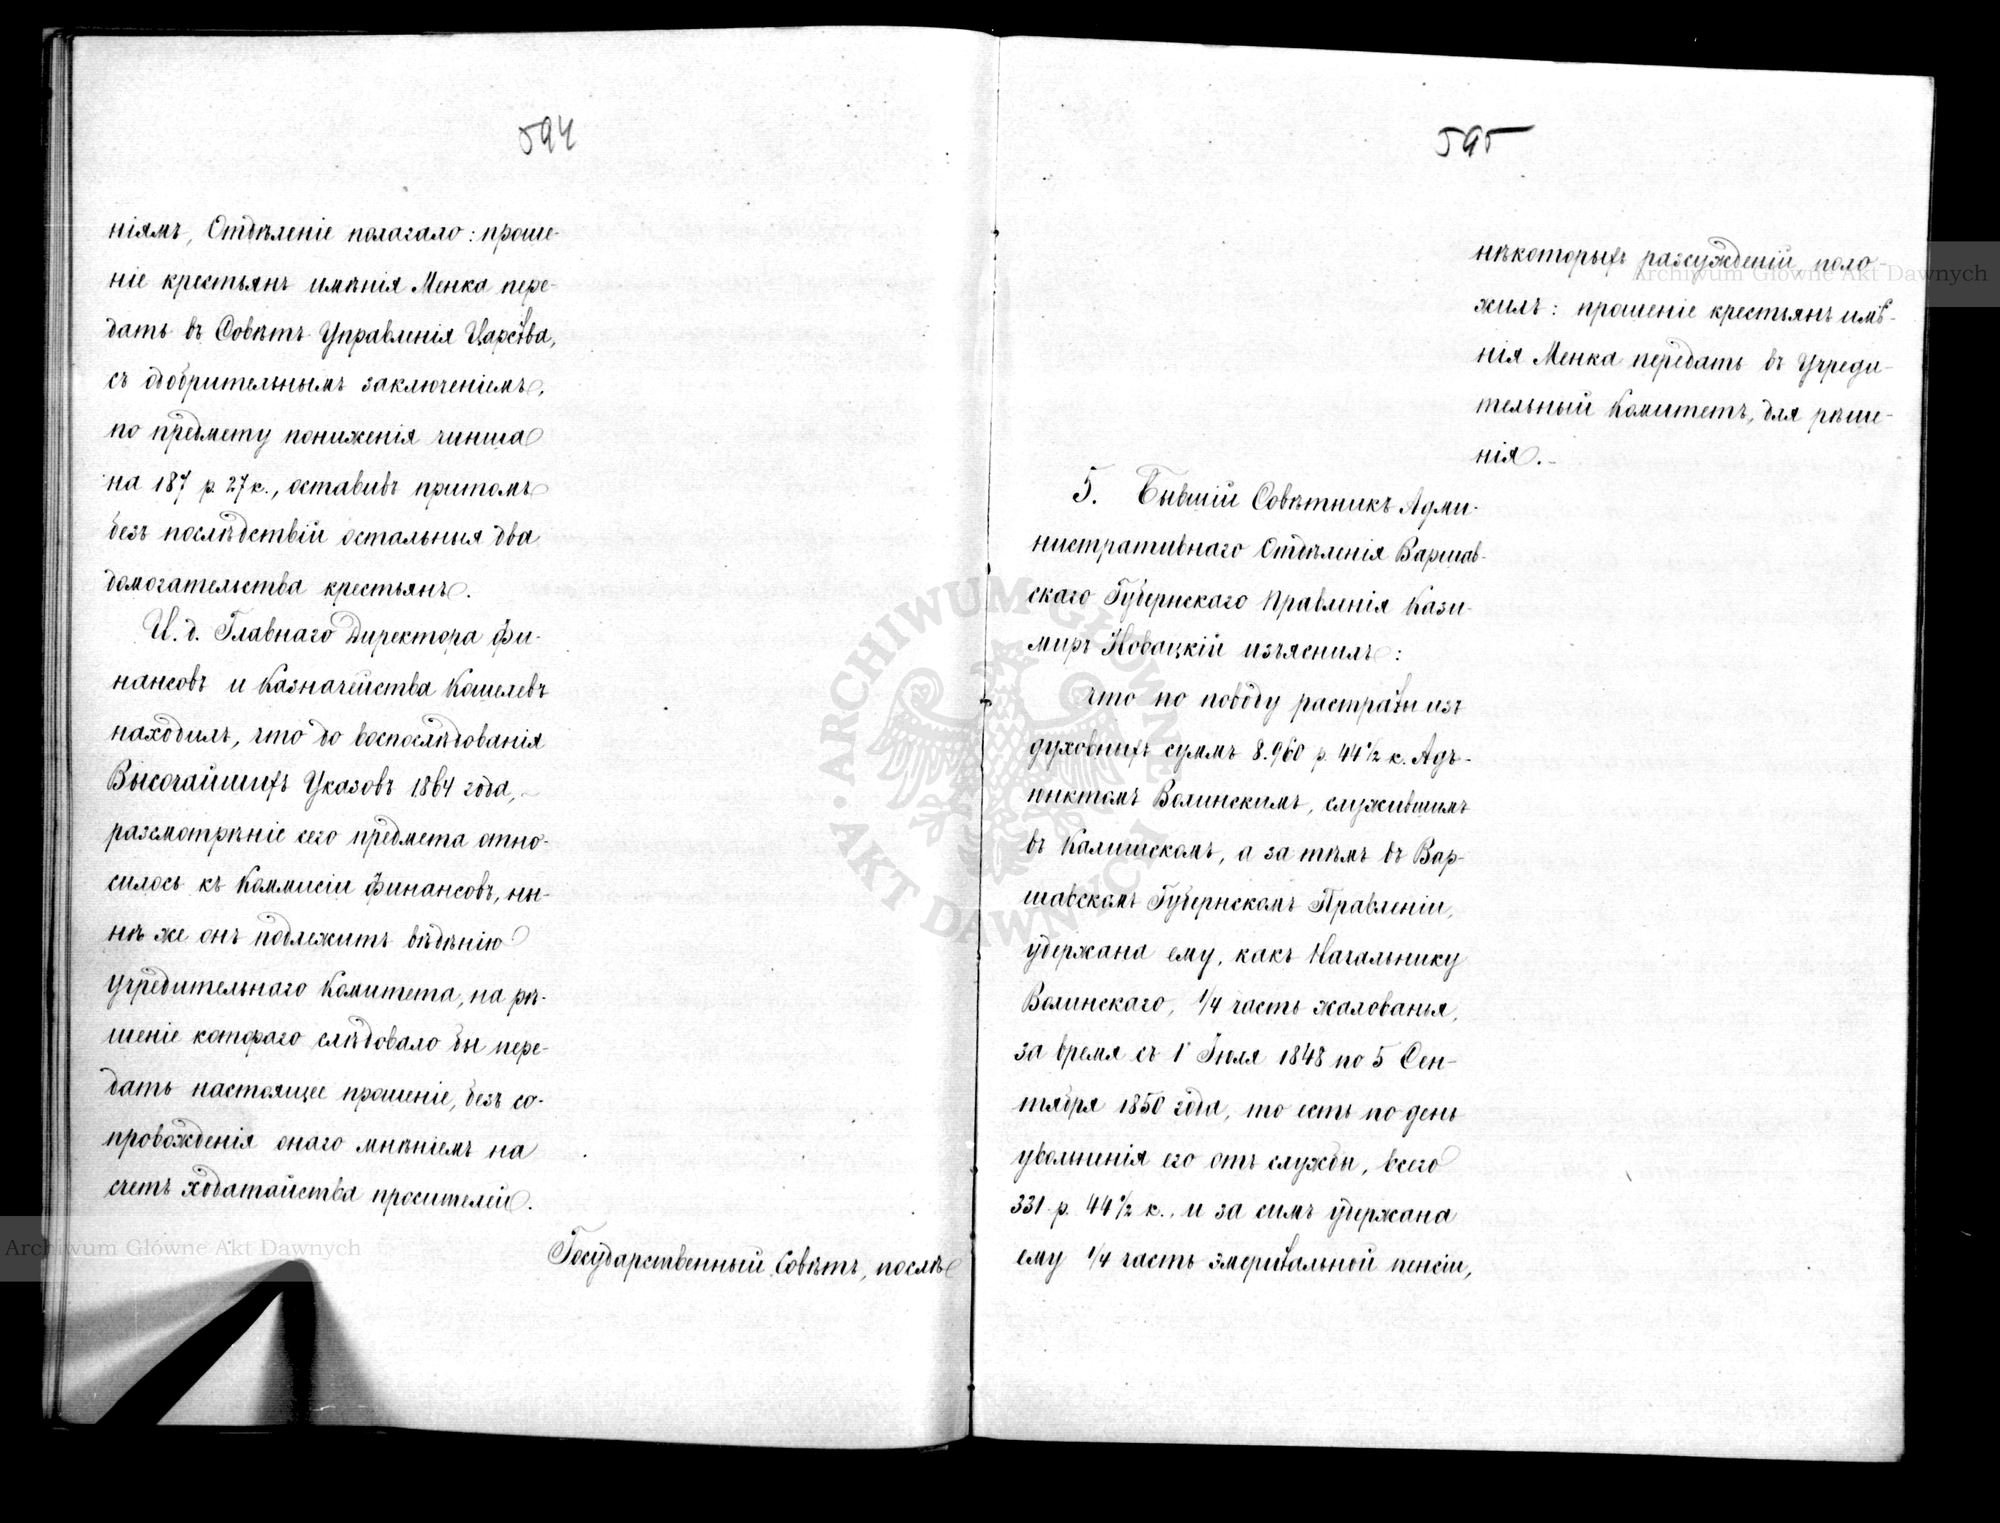 594
ніямъ, Отдѣленіе полагало: проше-
ніе крестьянъ имѣнія Менка пере-
дать въ Совѣтъ Управленія Царства,
съ одобрительнымъ заключеніемъ,
по предмету пониженія чинша
на 187 р. 27 к., оставивъ притомъ
безъ послѣдствій остальныя два
домогательства крестьянъ.
И. д. Главнаго Директора Фи-
нансовъ и Казначейства Кошелевъ
находилъ, что до воспослѣдованія
Высочайшихъ Указовъ 1864 года, -
разсмотрѣніе сего предмета отно-
силось къ Коммисіи Финансовъ, ны-
нѣ же онъ подлежитъ вѣдѣнію
Учредительнаго Комитета, на рѣ-
шеніе котораго слѣдовало бы пере-
дать настоящее прошеніе, безъ со-
провожденія онаго мнѣніемъ на
счетъ ходатайства просителей.
Государственный Совѣтъ, послѣ
595
нѣкоторыхъ разсужденій поло-
жилъ: прошеніе крестьянъ имѣ-
нія Менка передать въ Учреди-
тельный Комитетъ, для рѣше-
нія. -
5. Бывшій Совѣтникъ Адми-
нистративнаго Отдѣленія Варшав-
скаго Губернскаго Правленія Кази-
миръ Новацкій изъяснилъ:
что по поводу растраты изъ
духовныхъ суммъ 8.960 р. 44 1/2 к. Адъ-
юнктомъ Волинскимъ, служившимъ
въ Калишскомъ, а за тѣмъ въ Вар-
шавскомъ Губернскомъ Правленіи,
удержана ему, какъ Начальнику
Волинскаго, 1/4 часть жалованья,
за время съ 1 Іюля 1848 по 5 Сен-
тября 1850 года, то есть по день
увольненія его отъ службы, всего
331 р. 44 1/2 к., и за симъ удержана
ему 1/4 часть эмеритальной пенсіи,
Archiwum Główne Akt Dawnych
Archiwum Główne Akt Dawnych
ARCHIWUM GŁÓWNE AKT DAWNYCH